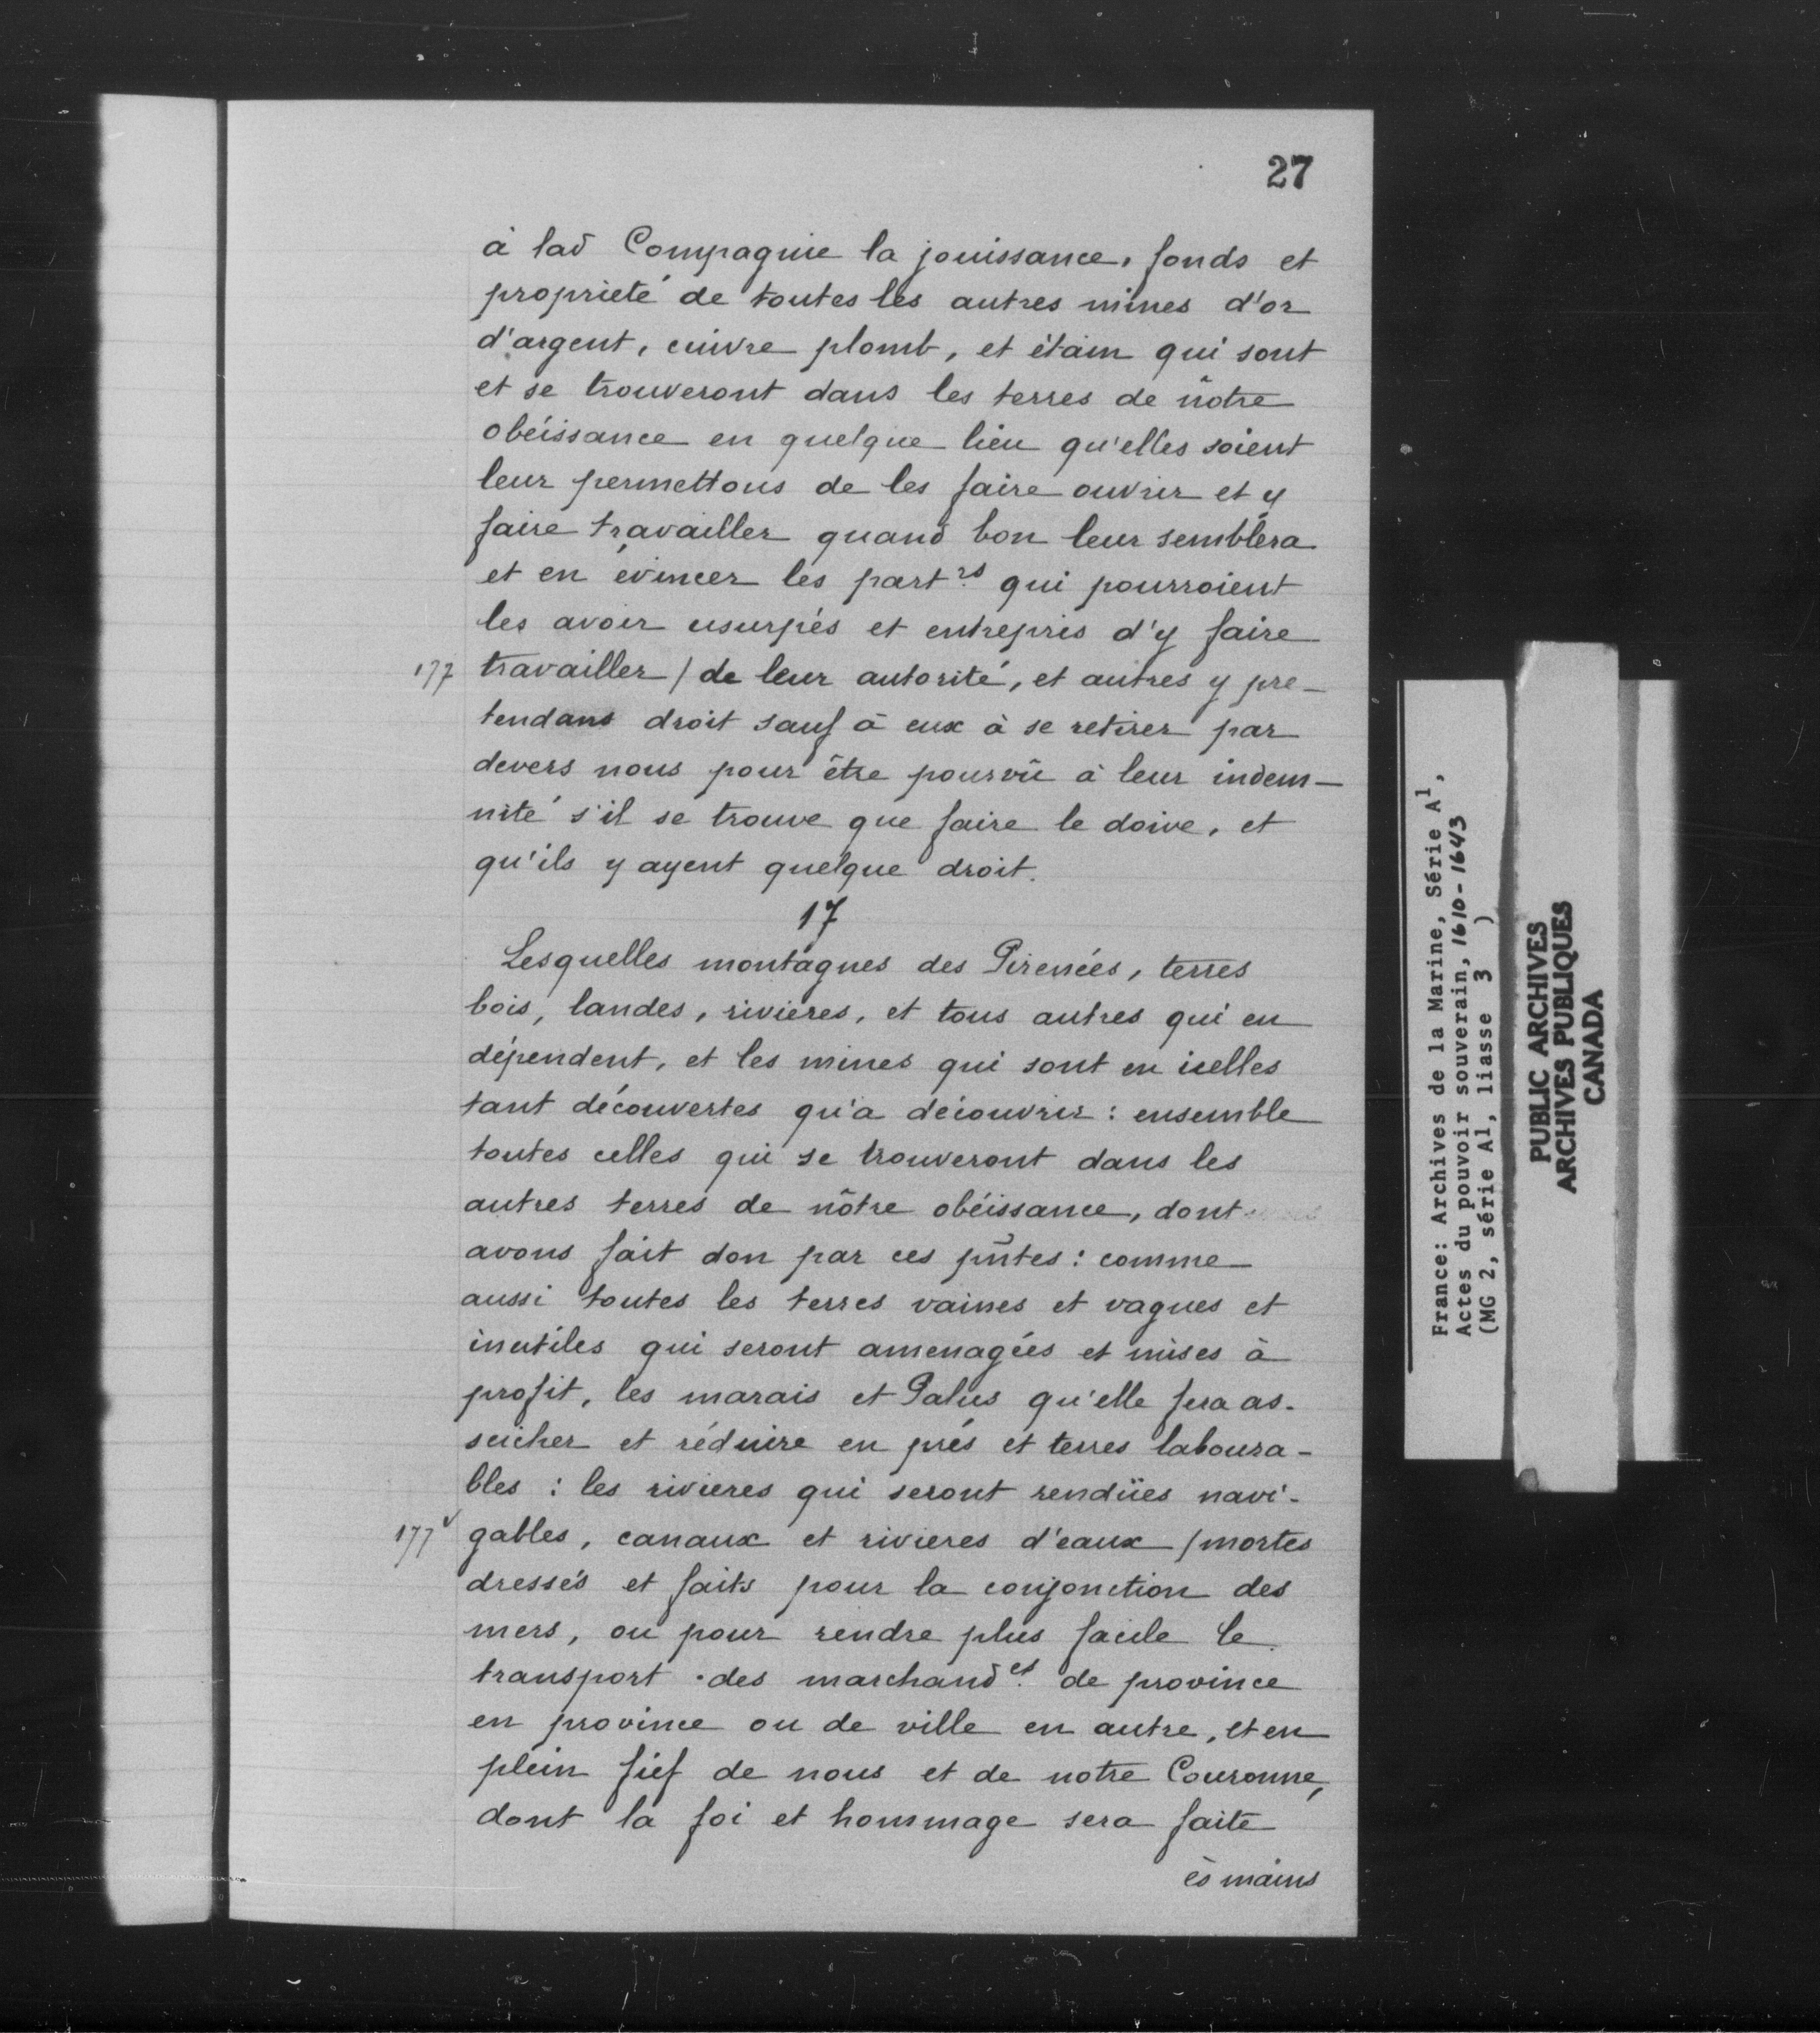 27
à lad Compagnie la jouissance, fonds et
propriété de toutes les autres mines d'or
d'argent, cuivre plomb, et étain qui sont
et se trouveront dans les terres de nôtre
obéissance en quelque lieu qu'elles soient
leur permettons de les faire ouvrir et y
faire travailler quand bon leur semblera
et en évincer les part.rs qui pourroient
les avoir usurpés et entrepris d'y faire
177 travailler / de leur autorité, et autres y pre-
tendans droit sauf à eux à se retirer par
devers nous pour être pourvû à leur indem-
nité s'il se trouve que faire le doive, et
qu'ils y ayent quelque droit.
17
Lesquelles montagnes des Pirenées, terres
bois, landes, rivieres, et tous autres qui en
dépendent, et les mines qui sont en icelles
tant découvertes qu'a découvrir : ensemble
toutes celles qui se trouveront dans les
autres terres de nôtre obéissance, dont
avons fait don par ces pñtes : comme
aussi toutes les terres vaines et vagues et
inutiles qui seront amenagées et mises à
profit, les marais et Palus qu'elle fera as-
seicher et réduire en prés et terres laboura-
bles : les rivieres qui seront rendües navi-
177v gables, canaux et rivieres d'eaux / mortes
dressés et faits pour la conjonction des
mers, ou pour rendre plus facile le
transport des marchand.es de province
en province ou de ville en autre, et en
plein fief de nous et de notre Couronne,
dont la foi et hommage sera faite
ès mains
France: Archives de la Marine, Série A1,
Actes du pouvoir souverain, 1610-1643
(MG 2, série A1, liasse 3 )
PUBLIC ARCHIVES
ARCHIVES PUBLIQUES
CANADA